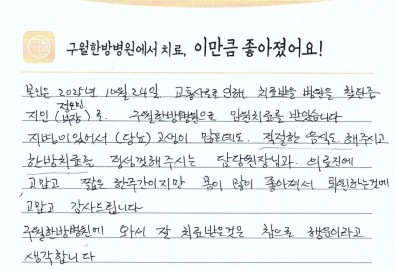 구월한방병원에서 치료, 이만큼 좋아졌어요!
본인은 2025년 10월 24일 교통사고로 인해 치료받을 병원을 찾던중
지인 로. 구월한방병원으로 입원치료를 받았습니다
지병이 있어서 (당뇨) 고생이 많은데도. 적절한 음식도 해주시고
한방치료를 정성껏해주시는 담당원장님과. 의료진에
고맙고 짧은 한주간이지만 몸이 많이 좋아져서 퇴원하는것에
고맙고 감사드립니다
구월한방병원에 와서 잘 치료받은것은 참으로 행운이라고
생각합니다